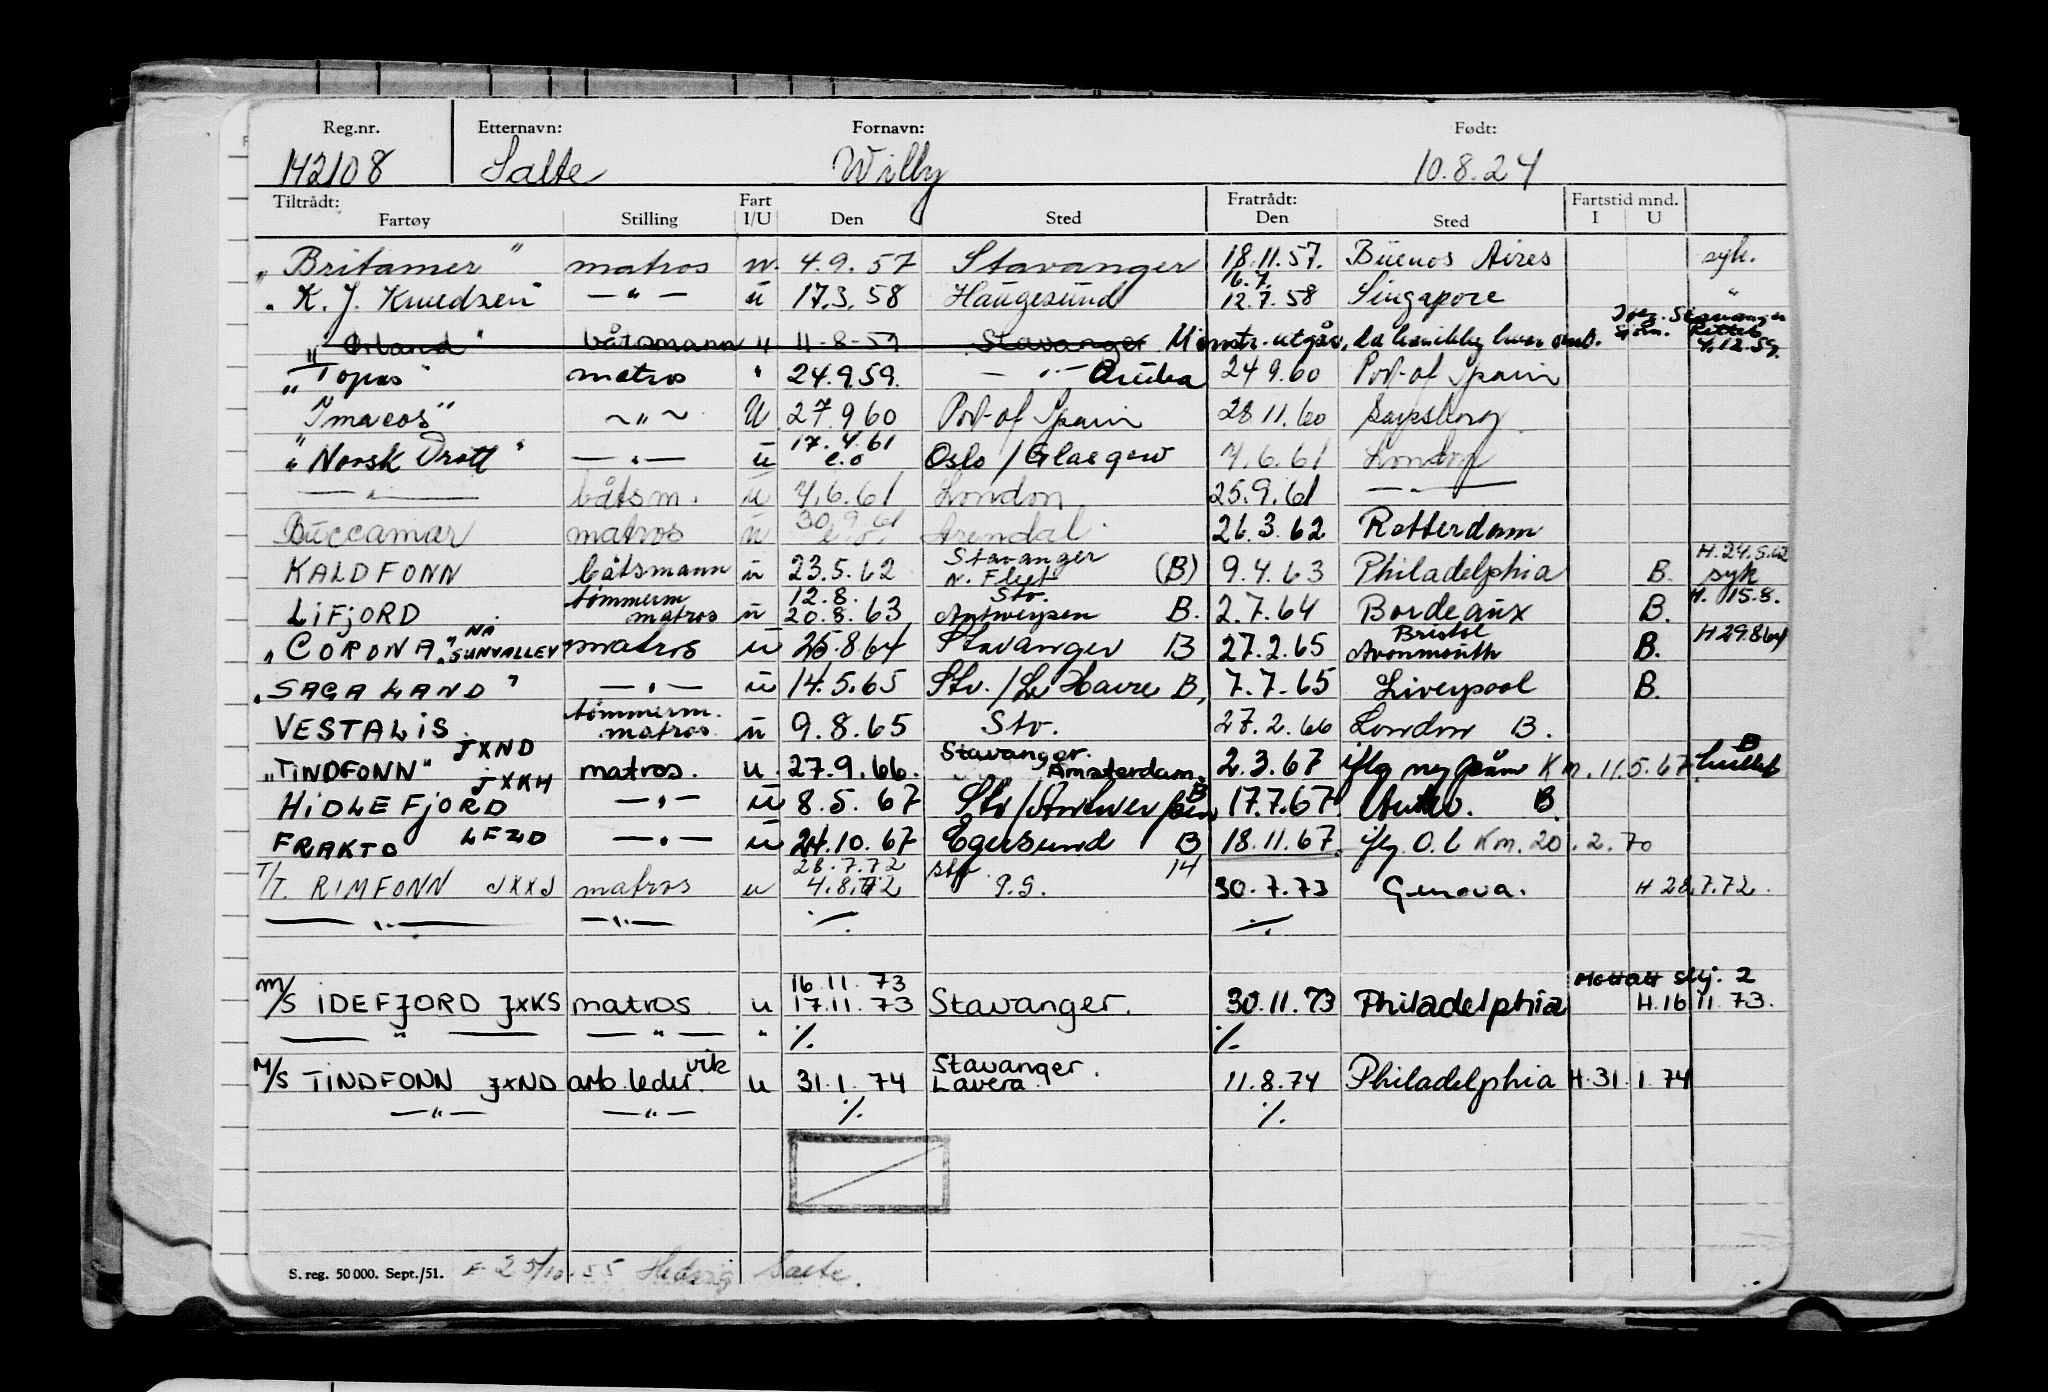 Reg.nr. Etternavn: Fornavn: Født:
142108 Salte Willy 10.8.24
Tiltrådt: Fart Fratrådt: Fartstid mnd.
Fartøy Stilling I/U Den Sted Den Sted I U
"Britamer" matros u. 4.9.57 Stavanger 18.11.57. Buenos Aires syk.
16.7.
"K. J. Knudsen" — " — u 17.3.58 Haugesund 12.7.58 Singapore "
"Orland" båtsmann " 11-8-59 Stavanger Mønstr. utgår, da han ikke
4/12.59.
"Topas" matros " 24.9.59. — " — Aruba 24 9.60 Port of Spain
"Imacos" ~ " ~ U 27 9 60 Port of Spain 28.11.60 Sarpsborg
17.4.61
"Norsk Drott" — " — u e.o Oslo / Glasgow 7.6.61 London
— " — båtsm. u 7.6.61 London 25.9.61 — " —
30.9.61
Buccamar matros u e.o. Arendal. 26.3.62 Rotterdam
Stavanger H.24.5.62
KALDFONN båtsmann u 23.5.62 N. Fleet (B) 9.4.63 Philadelphia B. syk
tømmerm 12.8. Stv. H. 15.8.
LIFJORD matros u 20.8.63 Antwerpen B. 2.7.64 Bordeaux B.
nå Bristol H 29.8.64
"CORONA" "SUNVALLEY" matros u 25.8.64 Stavanger B 27.2.65 Avonmouth B.
"SAGALAND" — " — u 14.5.65 Stv. / Le Havre B, 7.7.65 Liverpool B.
tømmerm.
VESTALIS matros u 9.8.65 Stv. 27.2.66 London B.
JXND Stavanger. B
"TINDFONN" matros. u. 27.9.66. Amsterdam. 2.3.67 iflg ny Km. 11.5.67
JXKH
HIDLEFJORD — " — u 8.5.67 Stv / Antwerpen B 17.7.67. Antw. B
FRAKTO LEZD — " — u 24.10.67 Egersund B 18.11.67. iflg O.l Km. 20.2.70
28.7.72 Stv 14
T/T. RIMFONN JXXJ matros u 4.8.72 P.G. 30.7.73 Genova. H 28.7.72.
— " — — " — ·/. ·/.
16.11.73 Mottatt skj. 2
M/S IDEFJORD JXKS matros u 17.11.73 Stavanger. 30.11.73 Philadelphia H.16.11.73.
— " — — " — " ·/. ·/.
vik Stavanger.
M/S TINDFONN JXND arb. leder. u 31.1.74 Lavera 11.8.74 Philadelphia H.31.1.74
— " — — " — ·/. ·/.
S. reg. 50 000. Sept./51. F. 25/10.55 Hedvig Salte.